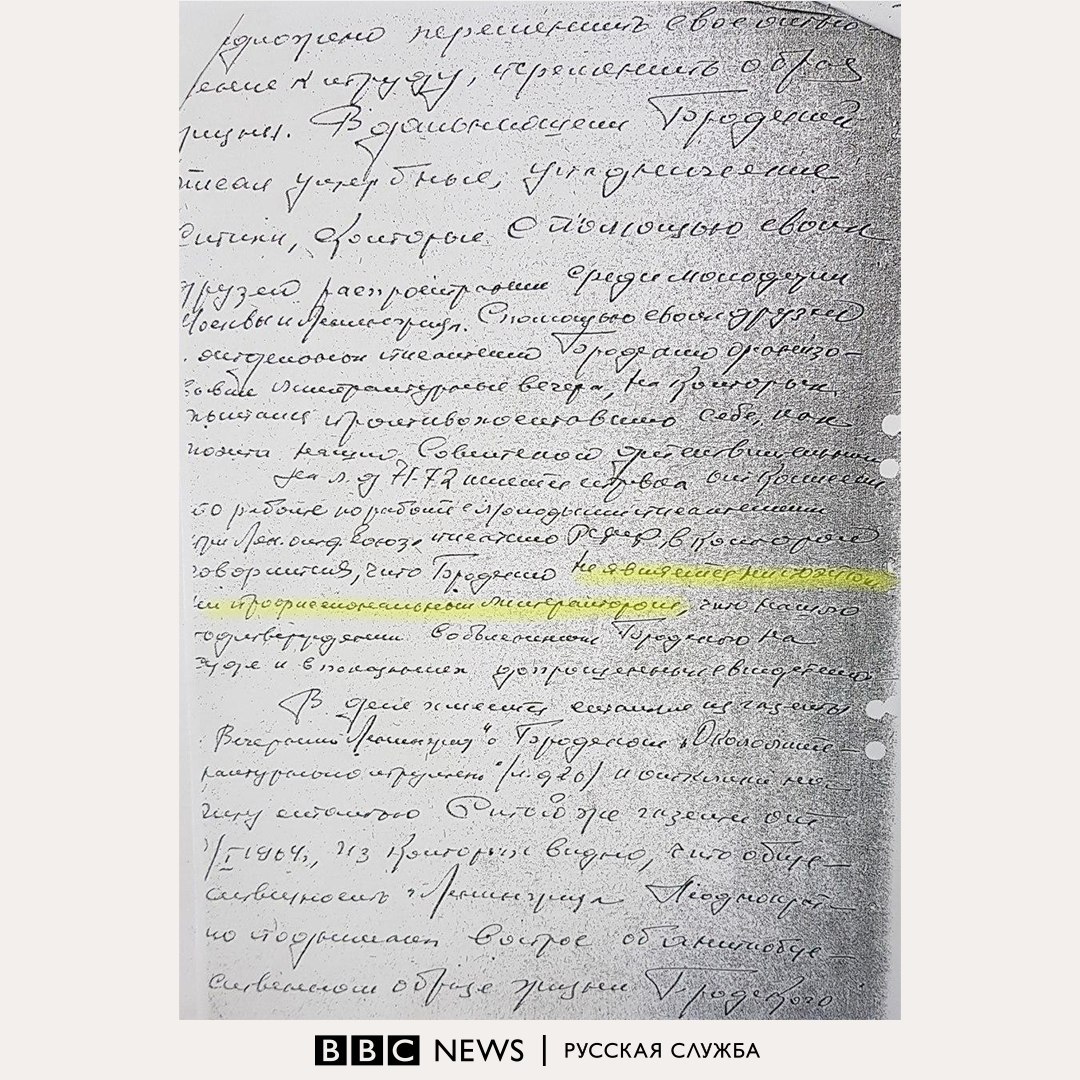 дложено переменить свое отно-
шение к труду, переменить образ
жизни. В дальнейшем Бродский
писал ущербные, упаднические
стихи, которые с помощью своих
друзей распространял среди молодежи
Москвы и Ленинграда. С помощью своих друзей
Бродский организо-
вывал литературные вечера, на которых
пытался противопоставить себя, как
поэта нашей Советской действительности.
На л.д. 71-72 имеется справка от комиссии
по работе по работе с молодыми писателями
при Лен. отд. Союза писателей РСФСР, в которой
говорится, что Бродский не является ни поэтом
ни профессиональным литератором, что нашло
подтверждение в объяснении Бродского на
суде и в показаниях допрошенных свидетелей
В деле имеется статья из газеты
"Вечерний Ленинград" о Бродском "Окололите-
ратурный трутень" (л.д. 20) и отклики на
эту статью той же газеты от
/I 1964, из которых видно, что обще-
ственность г. Ленинграда неоднократ-
но поднимала вопрос об антиобще-
ственном образе жизни Бродского
BBC NEWS | РУССКАЯ СЛУЖБА